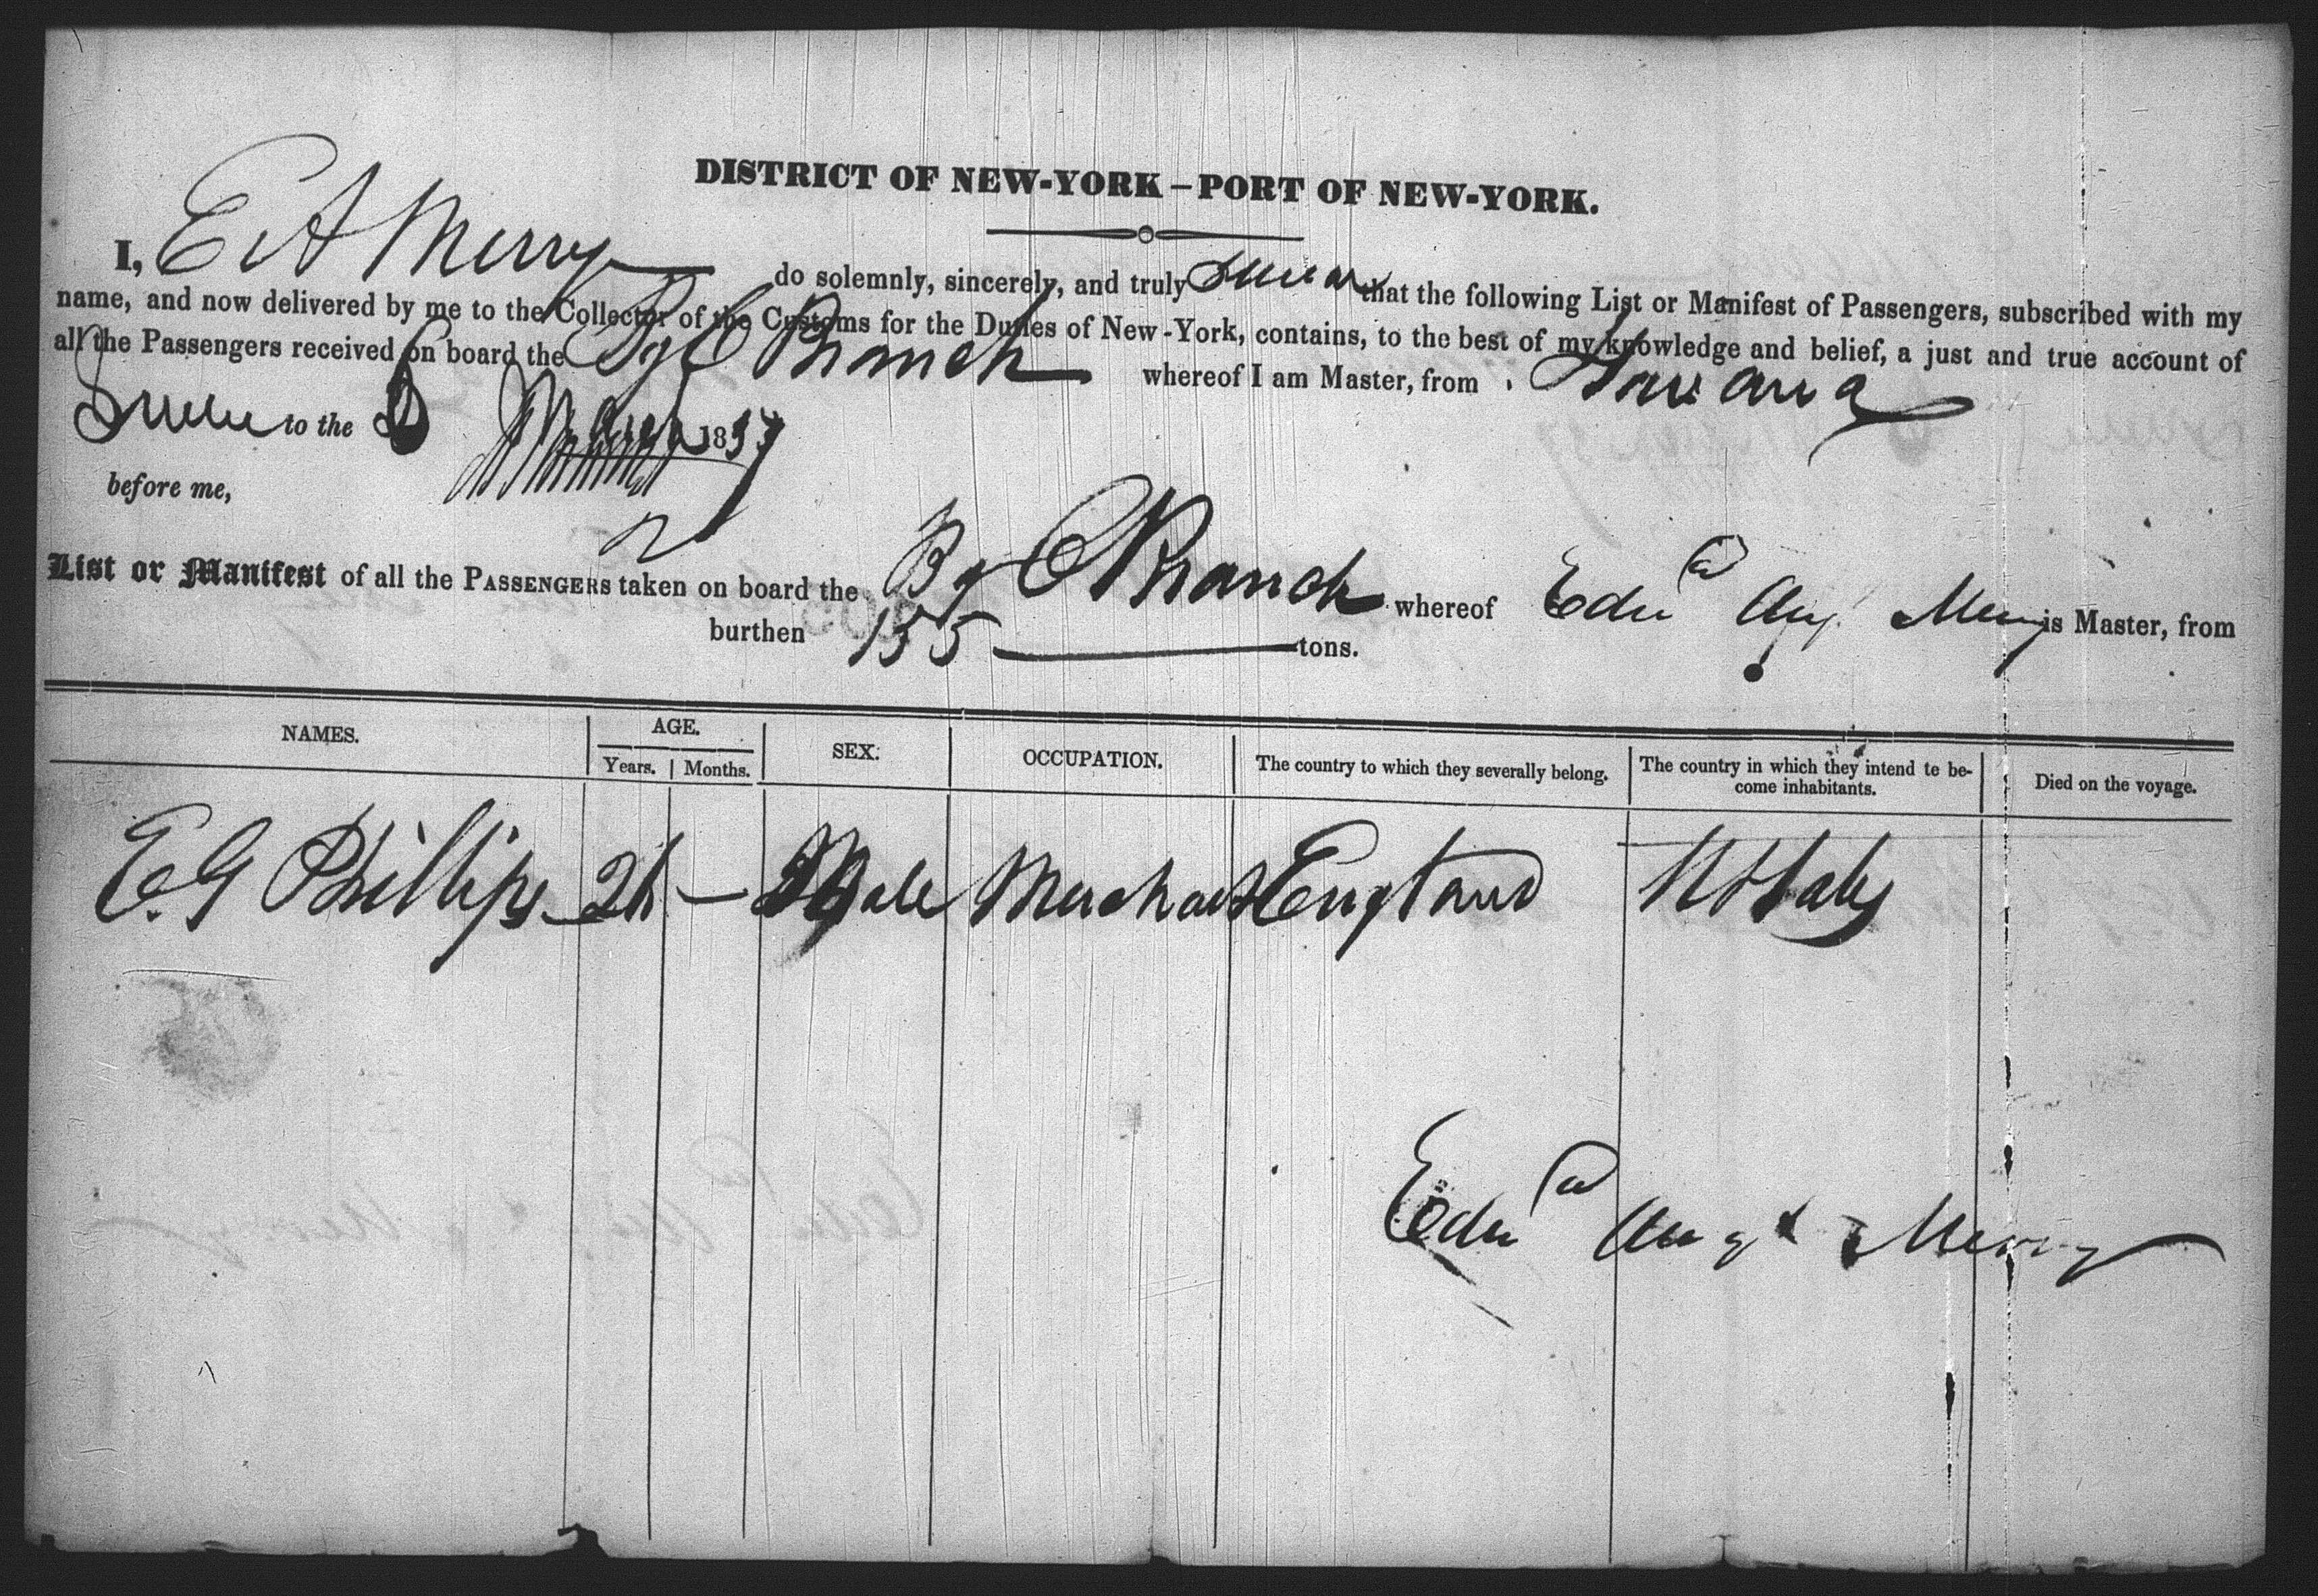 DISTRICT OF NEW-YORK – PORT OF NEW-YORK.
I, E A Merry do solemnly, sincerely, and truly swear that the following List or Manifest of Passengers, subscribed with my
name, and now delivered by me to the Collector of the Customs for the Duties of New-York, contains, to the best of my knowledge and belief, a just and true account of
all the Passengers received on board the Bg C Branch whereof I am Master, from Havana
to the 18
before me,
List or Manifest of all the PASSENGERS taken on board the Bg C Branch whereof Edwd Augt Merry is Master, from
burthen 155 tons.
NAMES. AGE. SEX. OCCUPATION. The country to which they severally belong. The country in which they intend te be-come inhabitants. Died on the voyage.
Years. Months.
E. G Phillips — Male Merchant England
Edwd Augt Merry